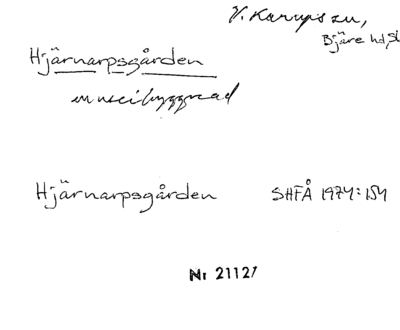 V. Karups sn,
Bjäre hd, Sk
Hjärnarpsgården
museibyggnad
Hjärnarpsgården SHFÅ 1974:154
Nr 21127